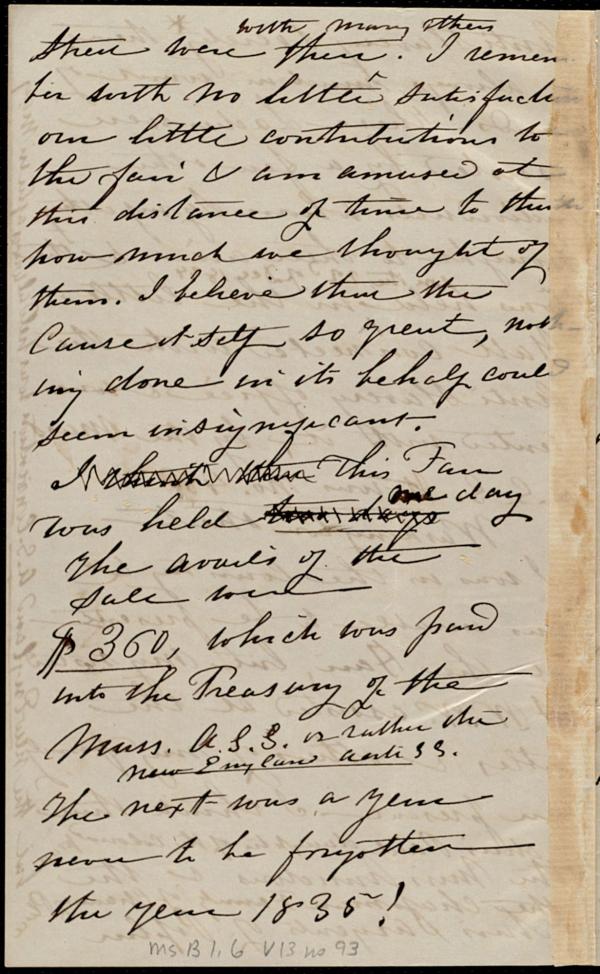 with many others
Street were there. I remem
ber with no little satisfacti
our little contributions to
the fair & am amused at
this distance of time to thin
how much we thought of
them. I believe that the
Cause itself so great, noth-
ing done in its behalf coul
seem insignificant.
I think then This Fair
was held two days one day
The avails of the
Sale were
$360, which was paid
into the Treasury of the
Mass. A.S.S. or rather the
New England Anti S S.
The next was a year
never to be forgotten
the year 1835!
Ms B 1.6 V13 no 93